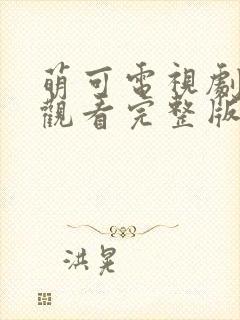 萌可電視劇
觀看完整版
洪晃